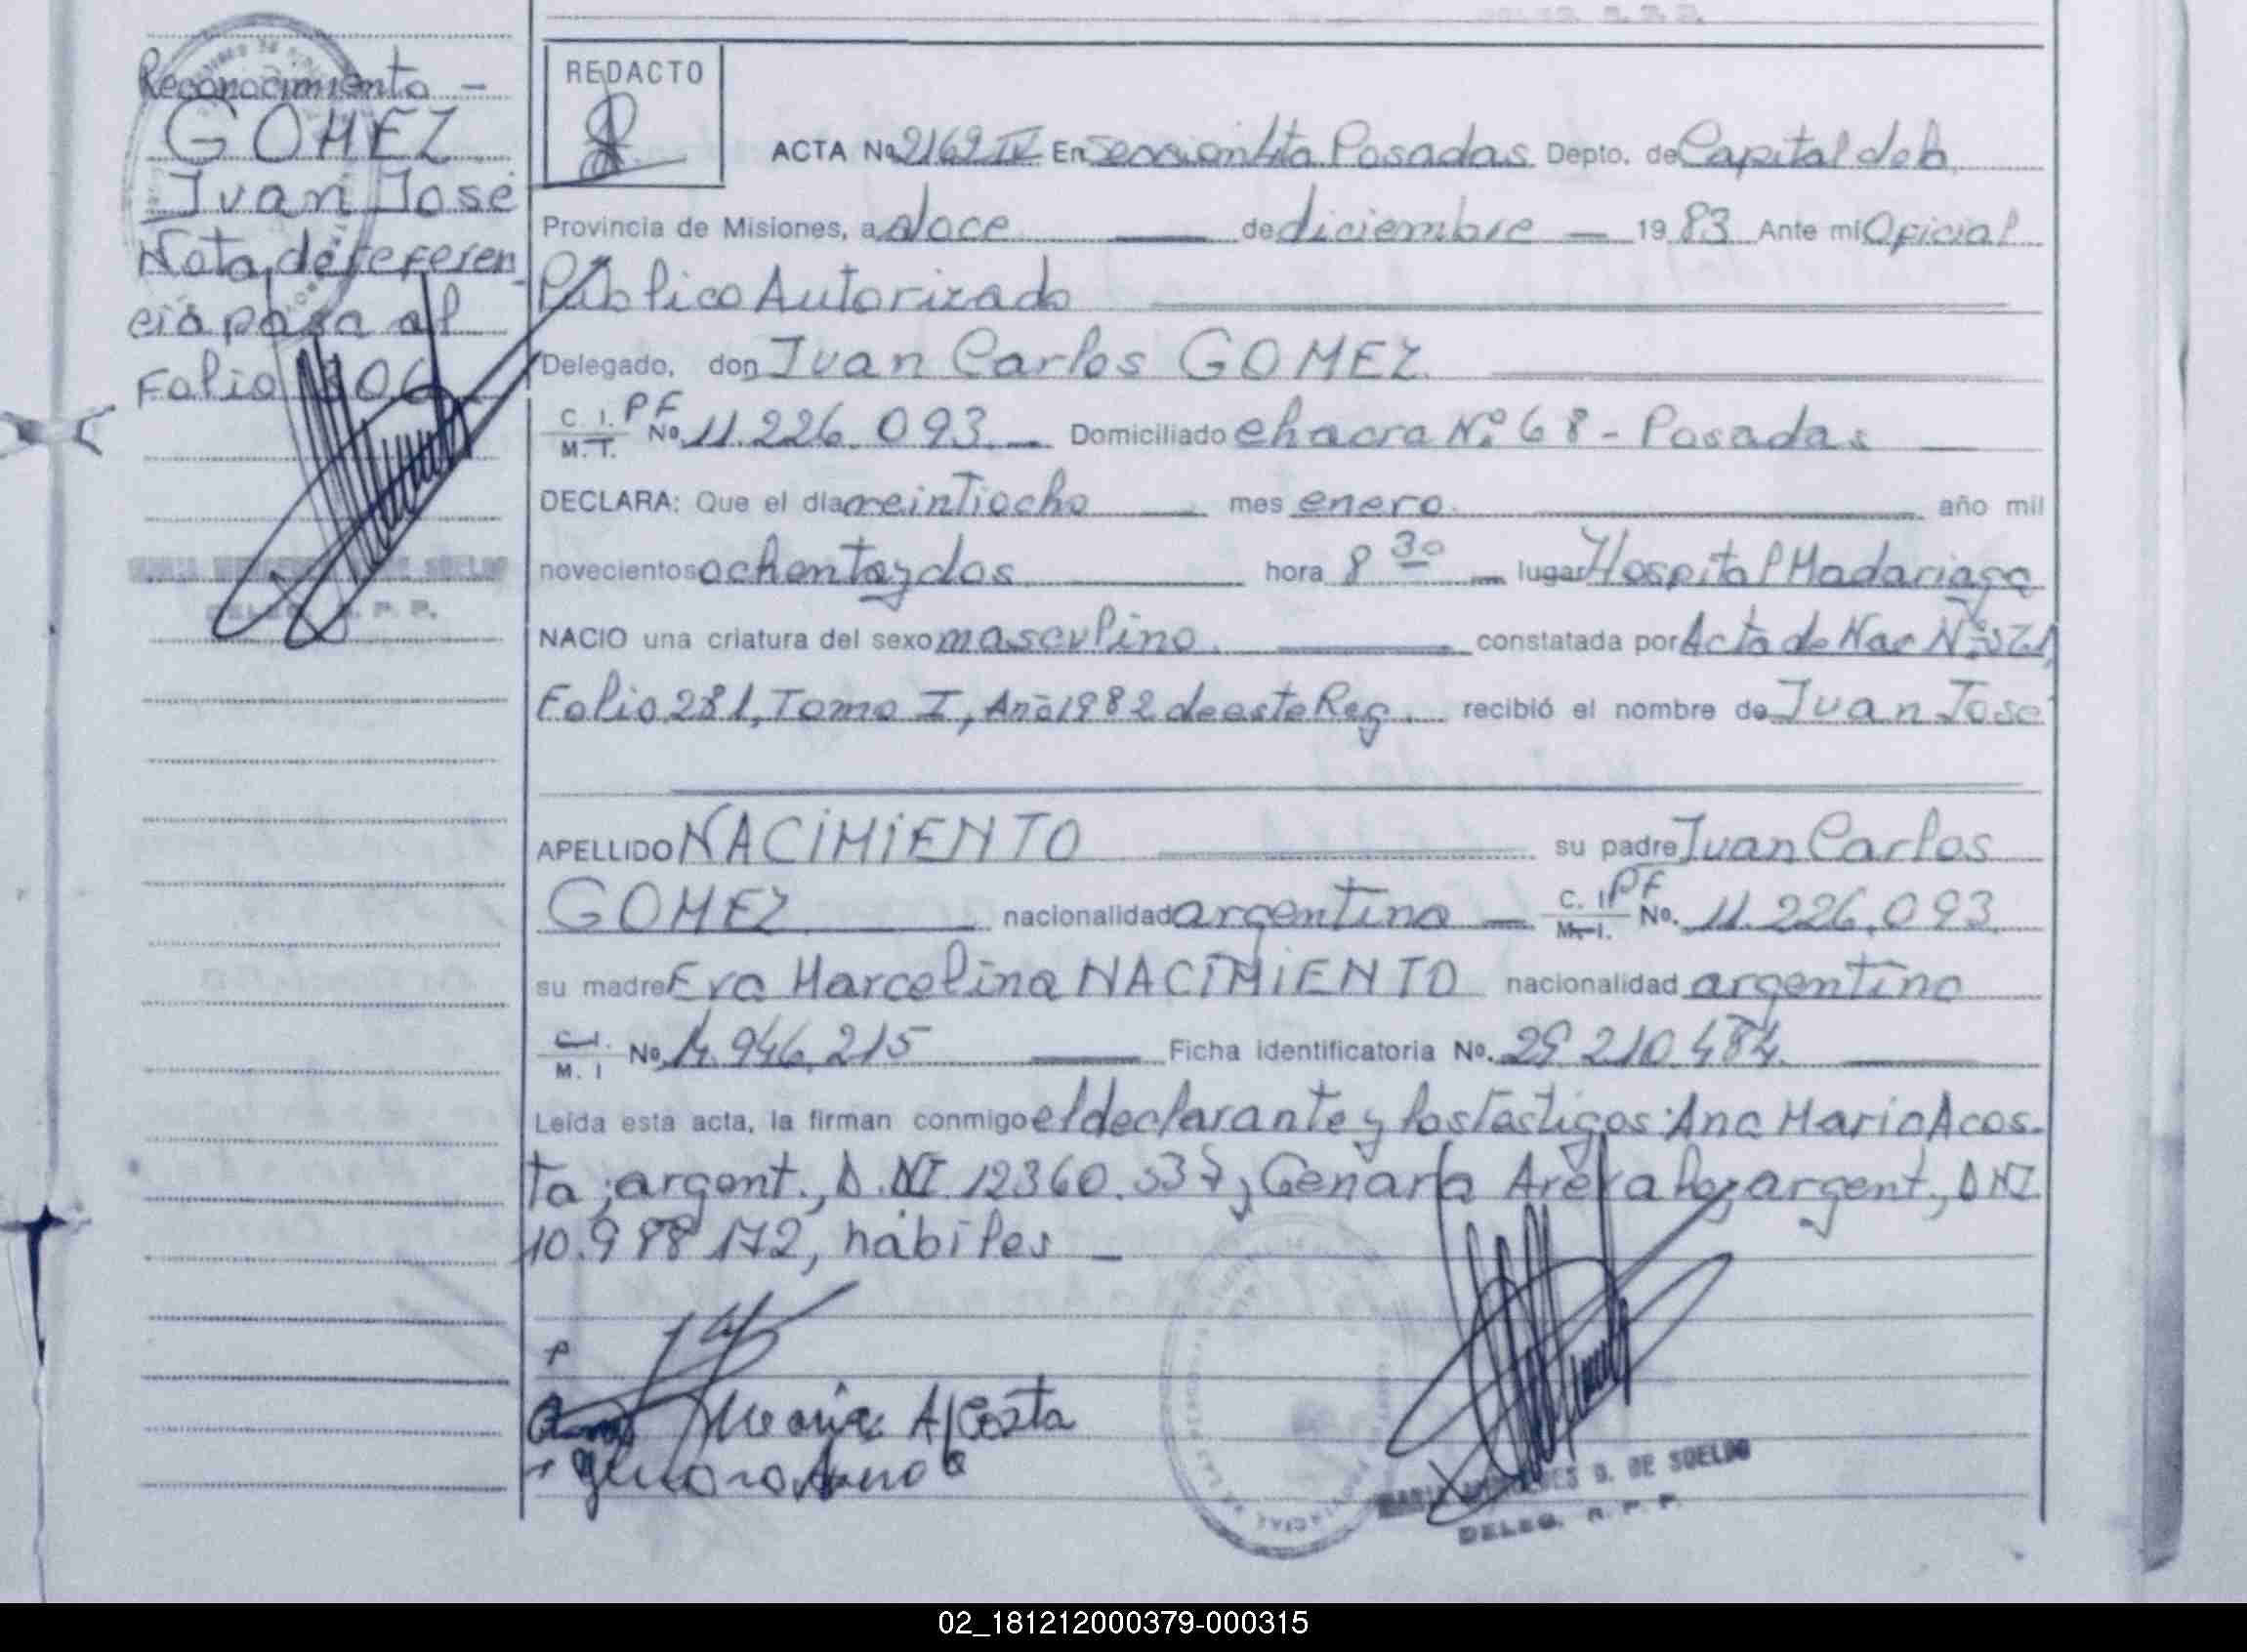 Reconocimiento -
GOMEZ
Juan José
Nota de referen
cia pasa al
Folio 306
DELEG. R. P. P.
REDACTO
ACTA No 2169 IV En Sección 4ta Posadas Depto. de Capital de la
Provincia de Misiones, a doce de diciembre 19 83 Ante mi Oficial
Público Autorizado
Delegado, don Juan Carlos GOMEZ
C. I. PF
M. T. No. 11.226.093. Domiciliado chacra Nº 68 - Posadas
DECLARA: Que el día veintiocho mes enero año mil
novecientos ochenta y dos hora 8 30 lugar Hospital Madariaga
NACIO una criatura del sexo masculino constatada por Acta de Nac Nº
Folio 281, Tomo I, Año 1982 de este Reg. recibió el nombre de Juan José
APELLIDO NACIMIENTO su padre Juan Carlos
GOMEZ nacionalidad argentina C. I. PF M. I. No. 11.226.093.
su madre Eva Marcelina NACIMIENTO nacionalidad argentina
C. I.
M. I No. 14.946.215 Ficha identificatoria No. 29.210.484.
Leída esta acta, la firman conmigo el declarante y los testigos: Ana Maria Acos-
ta, argent., D.NI. 12360.537 y Genara Arevalo, argent., DNI
10.988 172, hábiles -
Ana Maria Acosta
DE SUELDO
DELEG. R. P. P.
02_181212000379-000315